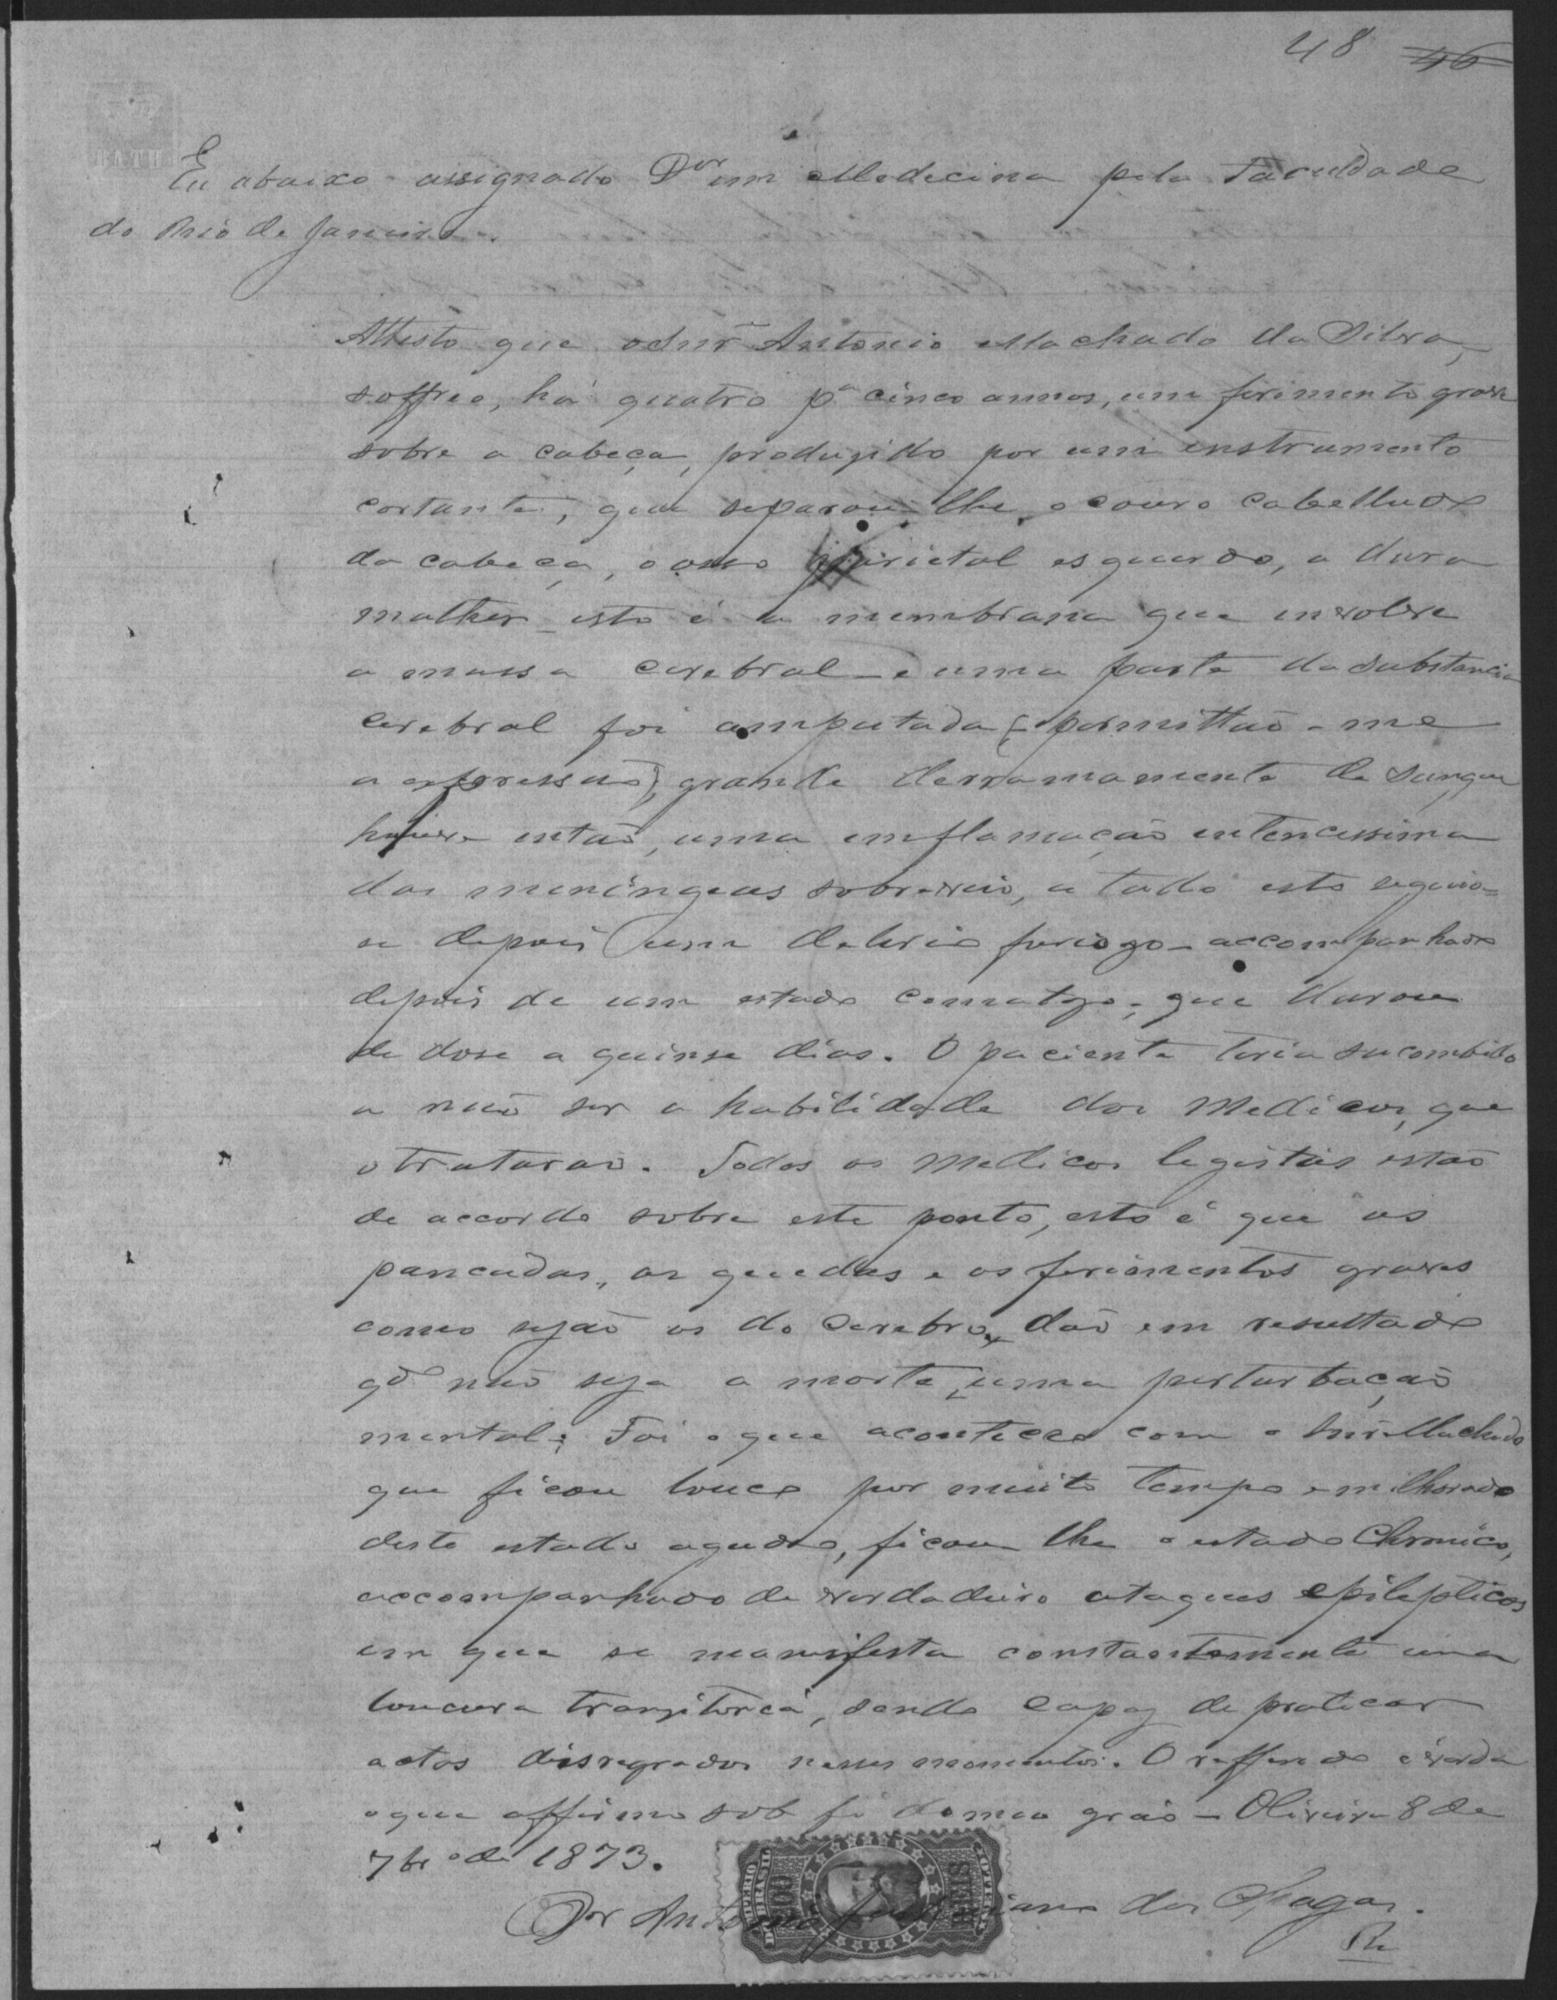 48 46
BATH
Eu abaixo assignado Dor em Medecina pela Faculdade
do Rio de Janeiro.
Attesto que o Snr Antonio Machado da Silva,
soffreo, há quatro pa cinco annos, um ferimento grave
sobre a cabeça, produzido por um enstrumento
cortante, que separou-lhe o couro cabelludo
da cabeça, o osso parietal esquerdo, a dura
mather - isto é a membrana que envolve
a massa cerebral - e uma parte da substancia
cerebral foi amputada (permittão-me
a expressão), grande derramamento de sangue
houve então, uma emflamação entencissima
das meningeas sobreveio, a tudo esto seguio-
se depois um delirio furiozo - accompanhado
depois de um estado comatozo, que durou
de dose a quinse dias. O paciente teria sucombido
a não ser a habilidade dos Medicos, que
o tratarão. Todos os Medicos legistas estão
de accordo sobre este ponto, esto é que as
pancadas, as quedas e os ferimentos graves
como sejão os do Cerebro, dão em resultado
qdo não seja a morte, uma perturbação
mental; Foi o que aconteceo com o Snr Machado
que ficou louco por muito tempo e milhorado
deste estado agudo, ficou lhe o estado Chronico,
accompanhado de verdadeiro ataques epilepticos
em que se manifesta constantemente uma
loucura tranzitoria, sendo capaz de praticar
actos disregrados nesses momentos. O refferido é verda
o que affirmo sob fé do meu gráo - Oliveira 8 de
7bro de 1873.
Dor Antonio Justiniano das Chagas.
IMPERIO DO BRASIL
200
REIS